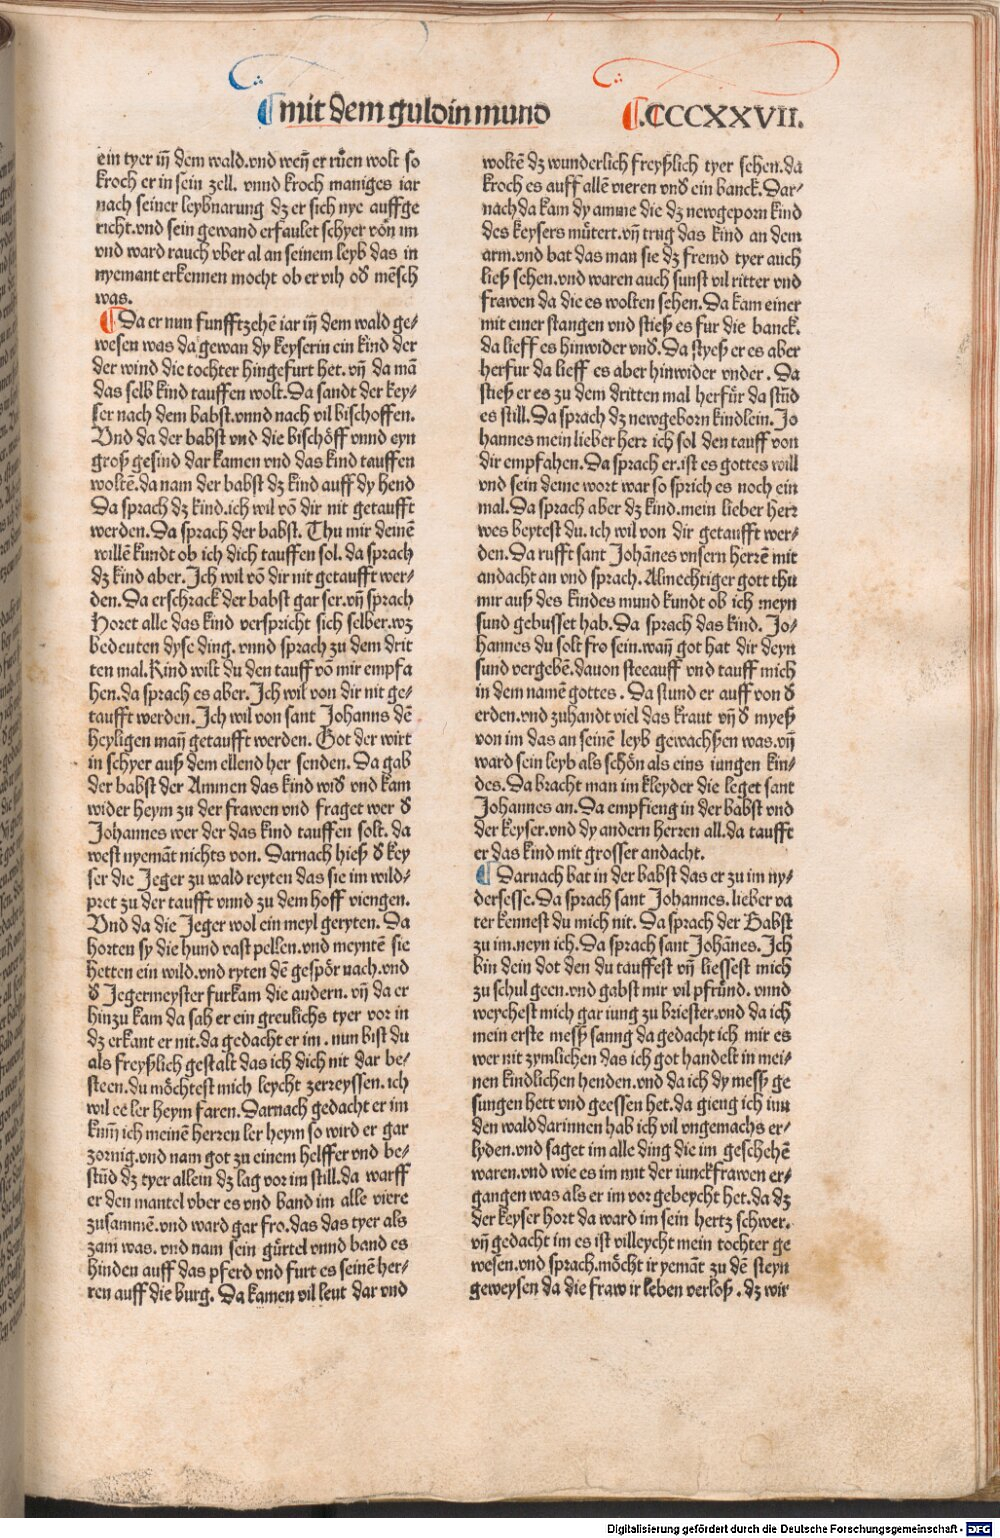 mit dem guldin mund
.CCCXXVII.
ein tyer iñ dem wald.vnd weñ er ruͤen wolt so
kroch er in sein zell. vnnd kroch maniges iar
nach seiner leybnarung dz er sich nye auffge
richt.vnd sein gewand erfaulet schyer võn im
vnd ward rauch vber al an seinem leyb das in
nyemant erkennen mocht ob er vih od̕ mẽsch
was.
Da er nun funfftzehẽ iar iñ dem wald ge⸗
wesen was da gewan dy keyserin ein kind der
der wind die tochter hingefurt het. vñ da mã
das selb kind tauffen wolt.Da sandt der key⸗
ser nach dem babst.vnnd nach vil bischoffen.
Vnd da der babst vnd die bischöff vnnd eyn
groß gesind dar kamen vnd das kind tauffen
woltẽ.da nam der babst dz kind auff dy hend
Da sprach dz kind.ich wil võ dir nit getaufft
werden.Da sprach der babst. Thu mir deinẽ
willẽ kundt ob ich dich tauffen sol. da sprach
dz kind aber.Ich wil võ dir nit getaufft wer⸗
den.Da erschrack der babst gar ser.vñ sprach
Horet alle das kind verspricht sich selber.wz
bedeuten dyse ding. vnnd sprach zu dem drit
ten mal.Kind wilt du den tauff võ mir empfa
hen.da sprach es aber.Ich wil von dir nit ge⸗
taufft werden.Ich wil von sant Johanns dẽ
heyligen mañ getaufft werden. Got der wirt
in schyer auß dem ellend her senden. Da gab
der babst der Ammen das kind wid̕ vnd kam
wider heym zu der frawen vnd fraget wer d̕
Johannes wer der das kind tauffen solt. da
west nyemãt nichts von. Darnach hieß d̕ key
ser die Jeger zu wald reyten das sie im wild⸗
pret zu der taufft vnnd zu dem hoff viengen.
Vnd da die Jeger wol ein meyl geryten. Da
horten sy die hund vast pellen.vnd meyntẽ sie
hetten ein wild.vnd ryten dẽ gespör nach.vnd
d̕ Jegermeyster furkam die andern. vñ da er
hinzu kam da sah er ein greulichs tyer vor in
dz erkant er nit.da gedacht er im. nun bist du
als freyßlich gestalt das ich dich nit dar be⸗
steen.du möchtest mich leycht zerreyssen. ich
wil ee ler heym faren. Darnach gedacht er im
kum̃ ich meinẽ herren ler heym so wird er gar
zornig.vnd nam got zu einem helffer vnd be⸗
stũd dz tyer allein dz lag vor im still.da warff
er den mantel vber es vnd band im alle viere
zusammẽ.vnd ward gar fro.das das tyer als
zam was. vnd nam sein gürtel vnnd band es
hinden auff das pferd vnd furt es seinẽ her⸗
ren auff die burg. Da kamen vil leut dar vnd
woltẽ dz wunderlich freyßlich tyer sehen.da
kroch es auff allẽ vieren vnd̕ ein banck.Dar⸗
nach da kam dy amme die dz newgeporn kind
des keysers muͤtert.vñ trug das kind an dem
arm.vnd bat das man sie dz fremd tyer auch
ließ sehen.vnd waren auch sunst vil ritter vnd
frawen da die es wolten sehen.Da kam einer
mit einer stangen vnd stieß es fur die banck.
da lieff es hinwider vnd̕. Da styeß er es aber
herfur da lieff es aber hinwider vnder. Da
stieß er es zu dem dritten mal herfür da stũd
es still.Da sprach dz newgeborn kindlein.Jo
hannes mein lieber herr ich sol den tauff von
dir empfahen.Da sprach er.ist es gottes will
vnd sein deine wort war so sprich es noch ein
mal.Da sprach aber dz kind.mein lieber herr
wes beytest du.ich wil von dir getaufft wer⸗
den.Da rufft sant Johãnes vnsern herrẽ mit
andacht an vnd sprach. Almechtiger gott thu
mir auß des kindes mund kundt ob ich meyn
sund gebusset hab.Da sprach das kind. Jo⸗
hannes du solt fro sein.wañ got hat dir deyn
sund vergebẽ.dauon steeauff vnd tauff mich
in dem namẽ gottes. Da stund er auff von d̕
erden.vnd zuhandt viel das kraut vñ d̕ myeß
von im das an seinẽ leyb gewachßen was.vñ
ward sein leyb als schön als eins iungen kin⸗
des.Da bracht man im kleyder die leget sant
Johannes an.Da empfieng in der babst vnd
der keyser.vnd dy andern herren all.da taufft
er das kind mit grosser andacht.
Darnach bat in der babst das er zu im ny⸗
dersesse.Da sprach sant Johannes. lieber va
ter kennest du mich nit. Da sprach der Babst
zu im.neyn ich.Da sprach sant Johãnes. Ich
bin dein dot den du tauffest vñ liessest mich
zu schul geen.vnd gabst mir vil pfründ. vnnd
weychest mich gar iung zu briester.vnd da ich
mein erste messz sanng da gedacht ich mir es
wer nit zymlichen das ich got handelt in mei⸗
nen kindlichen henden.vnd da ich dy messz ge
sungen hett vnd geessen het.da gieng ich inn
den wald darinnen hab ich vil vngemachs er⸗
lyden.vnd saget im alle ding die im geschehẽ
waren.vnd wie es im mit der iunckfrawen er⸗
gangen was als er im vor gebeycht het.da dz
der keyser hort da ward im sein hertz schwer.
vñ gedacht im es ist villeycht mein tochter ge
wesen.vnd sprach.möcht ir yemãt zu dẽ steyn
geweysen da die fraw ir leben verloß. dz wir
Digitalisierung gefördert durch die Deutsche Forschungsgemeinschaft - DFG